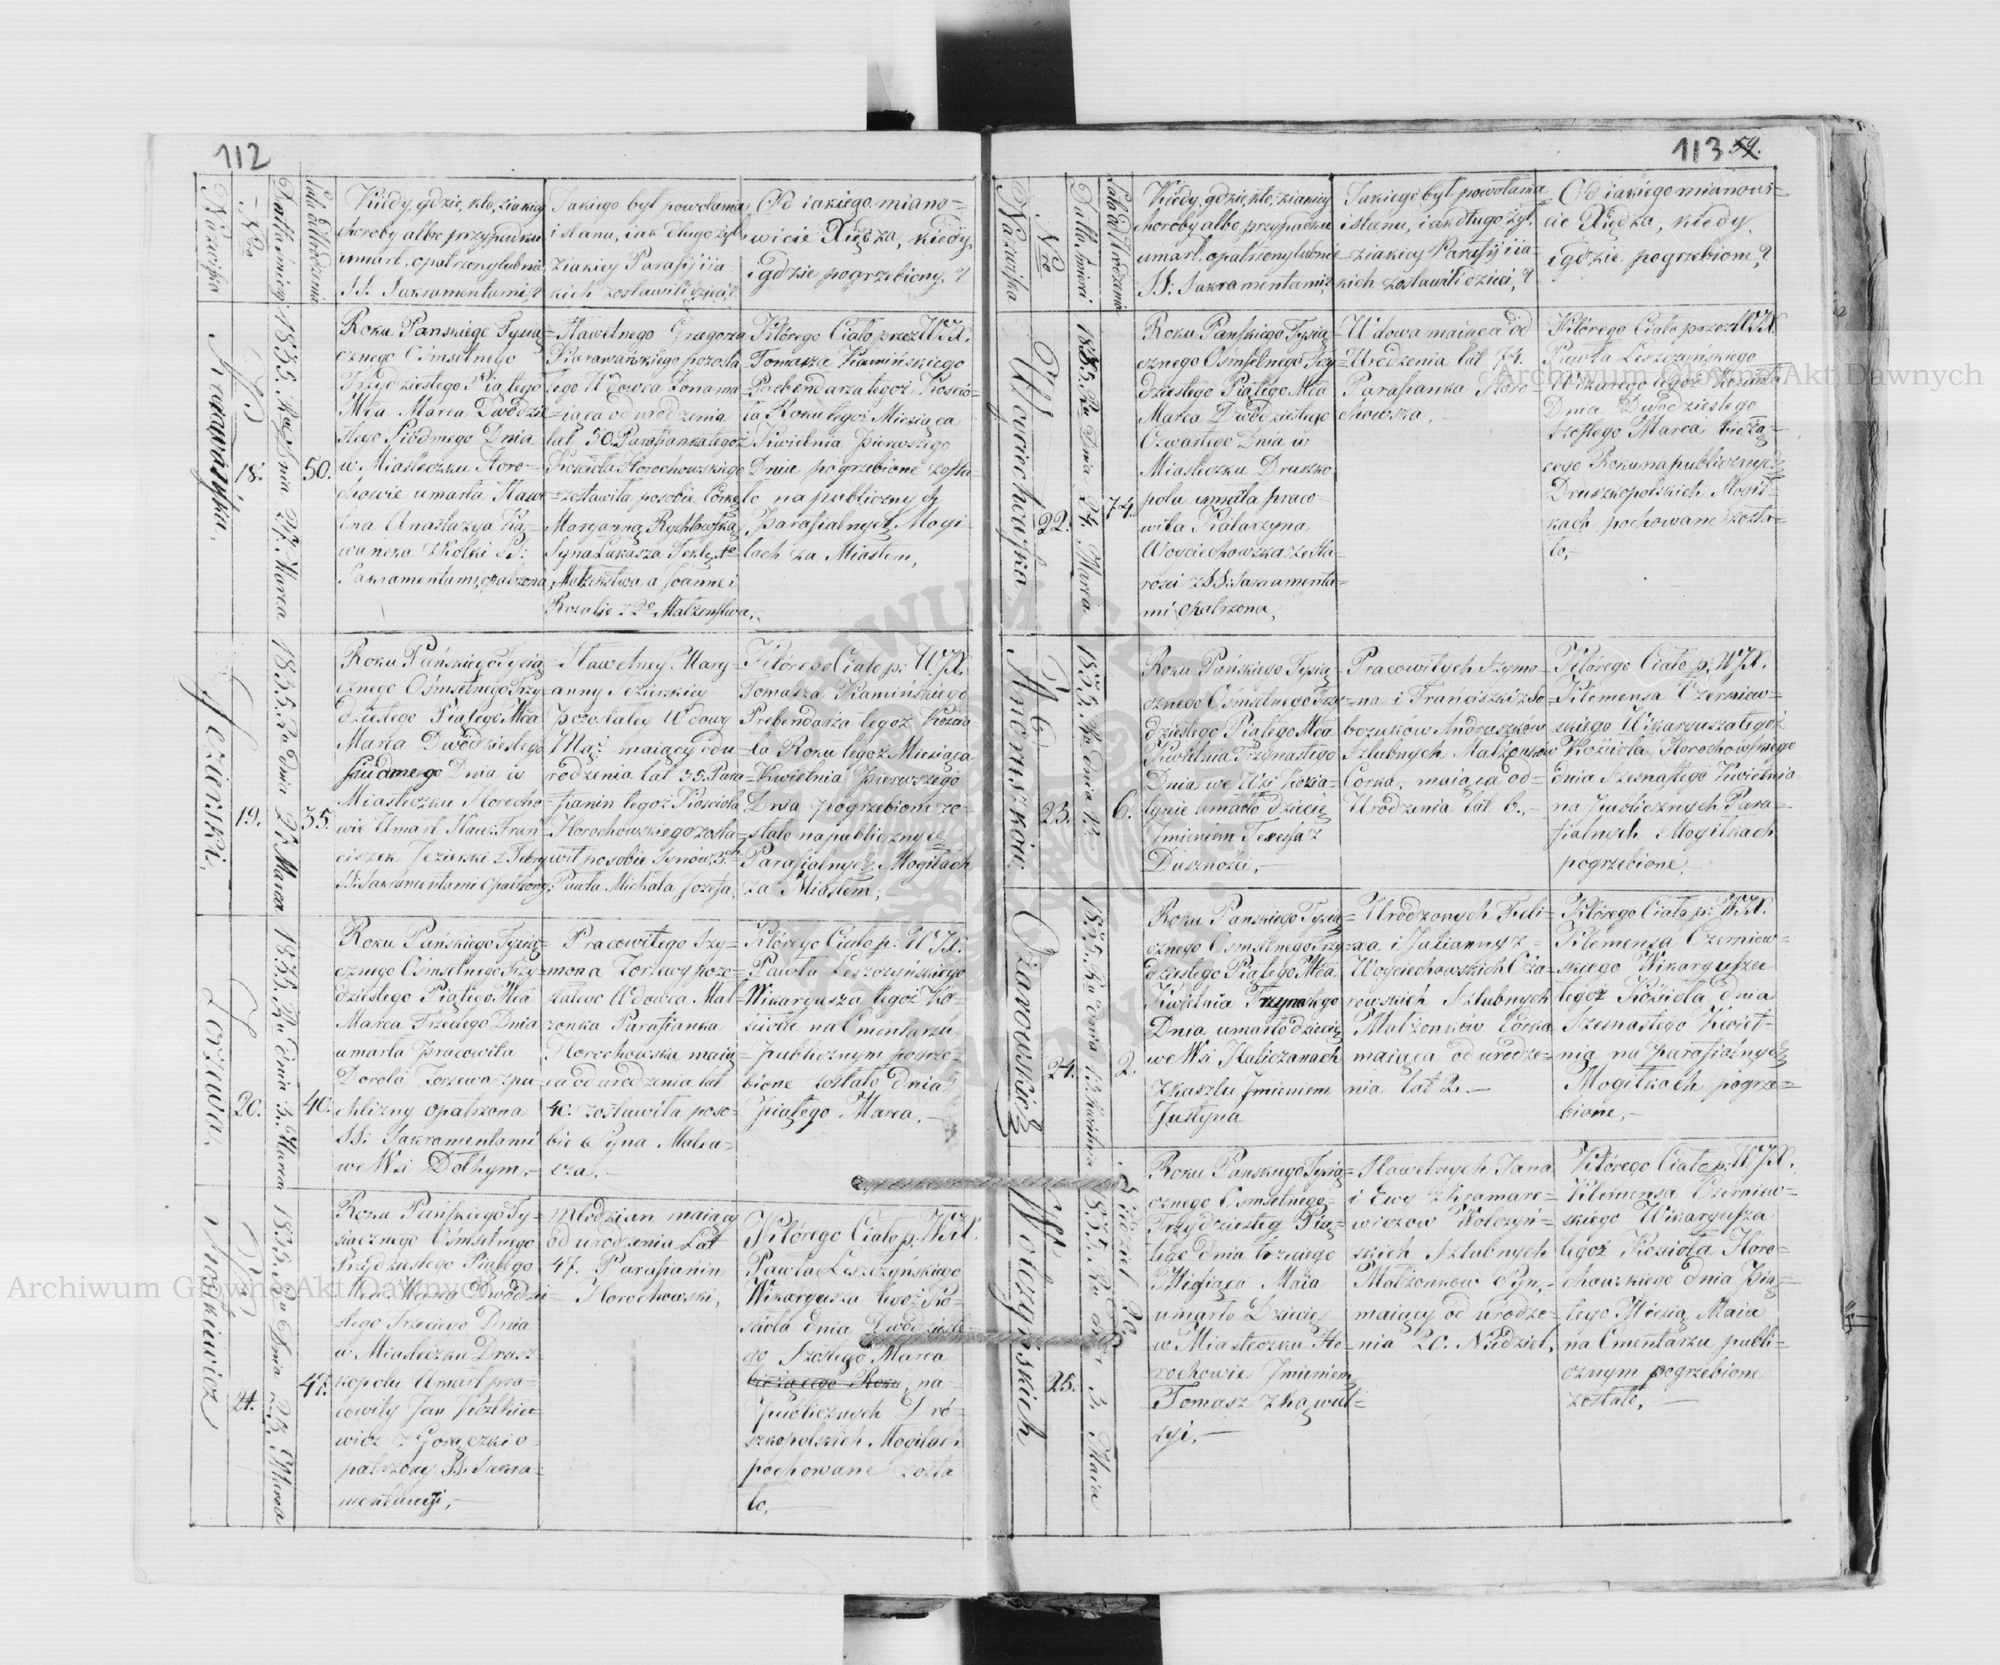 112
Nazwiska
Nro
Datta śmierci
Lata od Urodzenia
Kiedy, gdzie, kto, z iakiey
choroby albo przypadku
umarł, opatrzony lub nie
SS: Sakramentami?
Jakiego był powołania
i stanu, iak długo żył,
z iakiey Parafiji ia-
kich zostawił dzieci?
Od iakiego miano-
wicie Xiędza, kiedy,
i gdzie pogrzebiony?
18.
1835. Ru Dnia 27. Marca
50.
Roku Pańskiego Tysią-
cznego Ośmsetnego
Trzydziestego Piątego
Mca Marca Dwudzie
stego Siódmego Dnia
w Miasteczku Horo-
chowie umarła Sław
tna Anastazya
SS:
Sakramentami opatrzona,
Sławetnego Grzegorza
Karawańskiego pozosta
łego Wdowca Żona ma
iąca od urodzenia
lat 50. Parafianka tegoż
Kościoła Horochowskiego
zostawiła po sobie Córkę
Maryannę
Syna Łukasza
Małżeństwa a Joannę i
Rozalię z 2o Małżeństwa.
Którego Ciało przez W.J.X.
Tomasza Kamińskiego
Prebendarza tegoż Kościo-
ła Roku tegoż Miesiąca
Kwietnia Pierwszego
Dnia pogrzebione zosta
ło na publicznych
Parafialnych Mogi
łach za Miastem,
Jezierski.
19.
1835. Ru dnia 27. Marca
35.
Roku Pańskiego Tysią-
cznego Ośmsetnego Trzy-
dziestego Piątego Mca
Marca Dwódziestego
siódmego Dnia w
Miasteczku Horocho-
wie Umarł Sław: Fran-
ciszek Jezierski z
SS: Sakramentami opatrzony,
Sławetney Mary-
anny Jezierskiey
pozostałey Wdowy
Mąż maiący od u-
rodzenia lat 35. Para-
fianin tegoż Kościoła
Horochowskiego zosta-
wił po sobie Synów 3ch
Pawła Michała Józefa,
Którego Ciało p: W.J.X.
Tomasza Kamińskiego
Prebendarza tegoż Kościo
ła Roku tegoż Miesiąca
Kwietnia pierwszego
Dnia pogrzebione zo-
stało na publicznych
Parafialnych Mogiłach
za Miastem,
20.
1835. Ru dnia 3. Marca
40.
Roku Pańskiego Tysią-
cznego Ośmsetnego Trzy-
dziestego Piątego Mca
Marca Trzeciego Dnia
umarła Pracowita
Dorota
opatrzona
SS: Sakramentami
we Wsi Dołhym.-
Pracowitego Szy-
mona
Wdowca Mał-
żonka Parafianka
Horochowska maią-
ca od urodzenia lat
40. zostawiła po so-
bie
Którego Ciało p: W.J.X.
Pawła Leszczyńskiego
Wikaryusza tegoż Ko-
ścioła na Cmentarzu
publicznym pogrze-
bione zostało dnia
piątego Marca.-
21.
1835. Ru Dnia 23. Marca
47.
Roku Pańskiego Ty-
siącznego Ośmsetnego
Trzydziestego Piątego
Mca Marca Dwódzie
stego Trzeciego Dnia
w Miasteczku Drusz-
kopolu Umarł pra-
cowity Jan
z Gorączki o-
patrzony SS. Sakra-
mentami,-
Młodzian maiący
od urodzenia Lat
47. Parafianin
Horochowski,
Którego Ciało p: W.J.X.
Pawła Leszczyńskiego
Wikaryusza tegoż Ko-
ścioła dnia Dwódzieste-
go Szóstego Marca
bieżącego Roku, na
publicznych Dró-
szkopolskich Mogiłach
pochowane zosta
ło,
113 59.
Nazwiska
Nro
Datta śmierci
Lata od Urodzenia
Kiedy, gdzie, kto, z iakiey
choroby albo przypadku
umarł, opatrzony lub nie
SS: Sakramentami?
Jakiego był powołania
i stanu, iak długo żył,
z iakiey Parafiji ia-
kich zostawił dzieci?
Od iakiego mianowi-
cie Xiędza, kiedy,
i gdzie pogrzebione?
Woyciechowska
22.
1835. Ru Dnia 24. Marca
74.
Roku Pańskiego Tysią-
cznego Ośmsetnego Trzy
dziestego Piątego Mca
Marca Dwódziestego
Czwartego Dnia w
Miasteczku Druszko
polu umarła praco-
wita Katarzyna
Woyciechowska ze Sta-
rości z SS: Sakramenta-
mi opatrzona,
Wdowa maiąca od
Urodzenia lat 74.
Parafianka Horo-
chowska.-
Którego Ciało przez W.J.X.
Pawła Leszczyńskiego
Wikarego tegoż Kościoła
Dnia Dwódziestego
szóstego Marca bieżą-
cego Roku na publicznych
Druszkopolskich Mogił-
kach pochowane zosta-
ło,-
Andruszków
23.
6.
Roku Pańskiego Tysią-
cznego Ośmsetnego Trzy-
dziestego Piątego Mca
Kwietnia Trzynastego
Dnia we Wsi
umarło dziecię
Imieniem Teressa z
Duszności,-
Pracowitych Szymo-
na i Franciszki z So-
bczuków Andruszków
Szlubnych Małżonków
Córka, maiąca od
Urodzenia lat 6.-
Którego Ciało p: W.J.X.
Klemensa Czerniew-
skiego Wikaryusza tegoż
Kościoła Horochowskiego
dnia Szesnastego Kwietnia
na publicznych Para-
fialnych Mogiłkach
pogrzebione.-
Ożarowskich
24.
1835. Ru dnia 13 Kwietnia
2.
Roku Pańskiego Tysią-
cznego Ośmsetnego Trzy-
dziestego Piątego Mca
Kwietnia Trzynastego
Dnia umarło dziecię
we Wsi Haliczanach
z kaszlu Imieniem
Justyna
Urodzonych Feli-
xa i Julianny z
Woyciechowskich Oża-
rowskich Szlubnych
Małżonków Córka
maiąca od urodze-
nia lat 2.-
Którego Ciało p: W.J.X.
Klemensa Czerniew-
skiego Wikaryusza
tegoż Kościoła dnia
Szesnastego Kwiet-
nia na parafialnych
Mogiłkach pogrze-
bione,-
Wołczyńskich
25.
1835. Ru dnia 3. Maia
Niedziel 20.
Roku Pańskiego Tysią-
cznego Ośmsetnego
Trzydziesteg Pią-
tego dnia trzeciego
Miesiąca Maia
umarło Dziecię
w Miasteczku Ho-
rochowie Imieniem
Tomasz z kąwul-
syi,-
Sławetnych Jana
i Ewy z Kramare-
wiczow Wołczyń-
skich Szlubnych
Małżonków Syn,
maiący od urodze-
nia 20. Niedziel,
Którego Ciało p: W.J.X.
Klemensa Czerniew-
skiego Wikaryusza
tegoż Kościoła Horo-
chowskiego dnia Pią-
tego Miesią: Maia
na Cmentarzu publi-
cznym pogrzebione
zostało,-
Archiwum Główne Akt Dawnych
Archiwum Główne Akt Dawnych